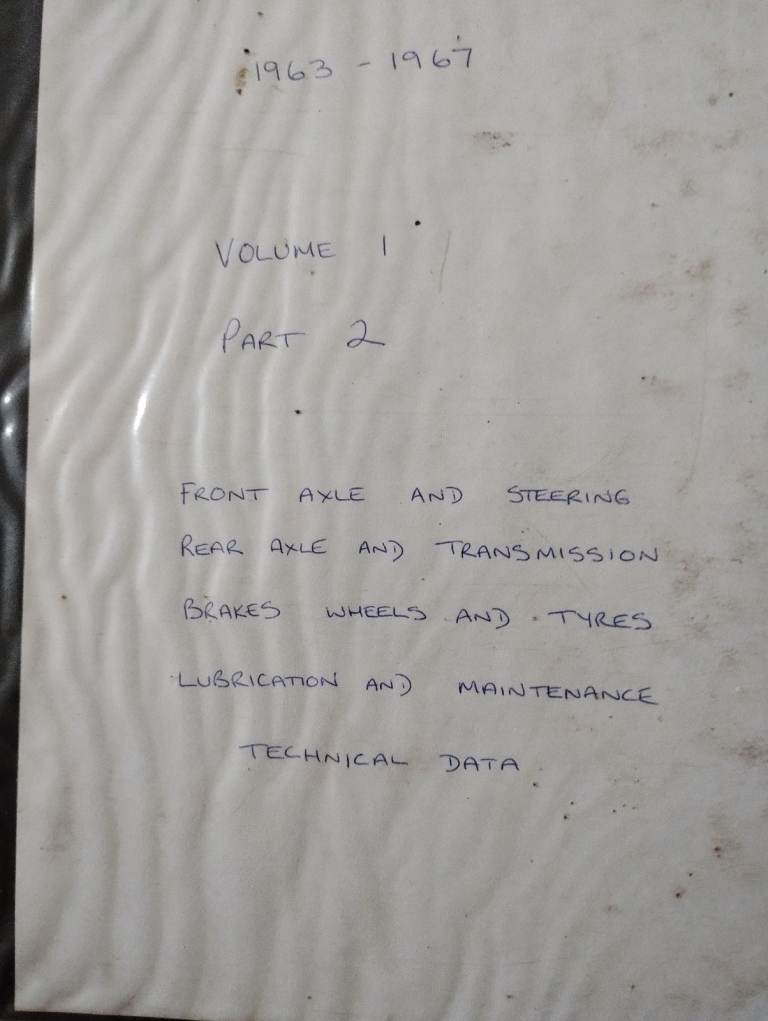 1963 - 1967
VOLUME 1
PART 2
FRONT AXLE AND STEERING
REAR AXLE AND TRANSMISSION
BRAKES WHEELS AND TYRES
LUBRICATION AND MAINTENANCE
TECHNICAL DATA